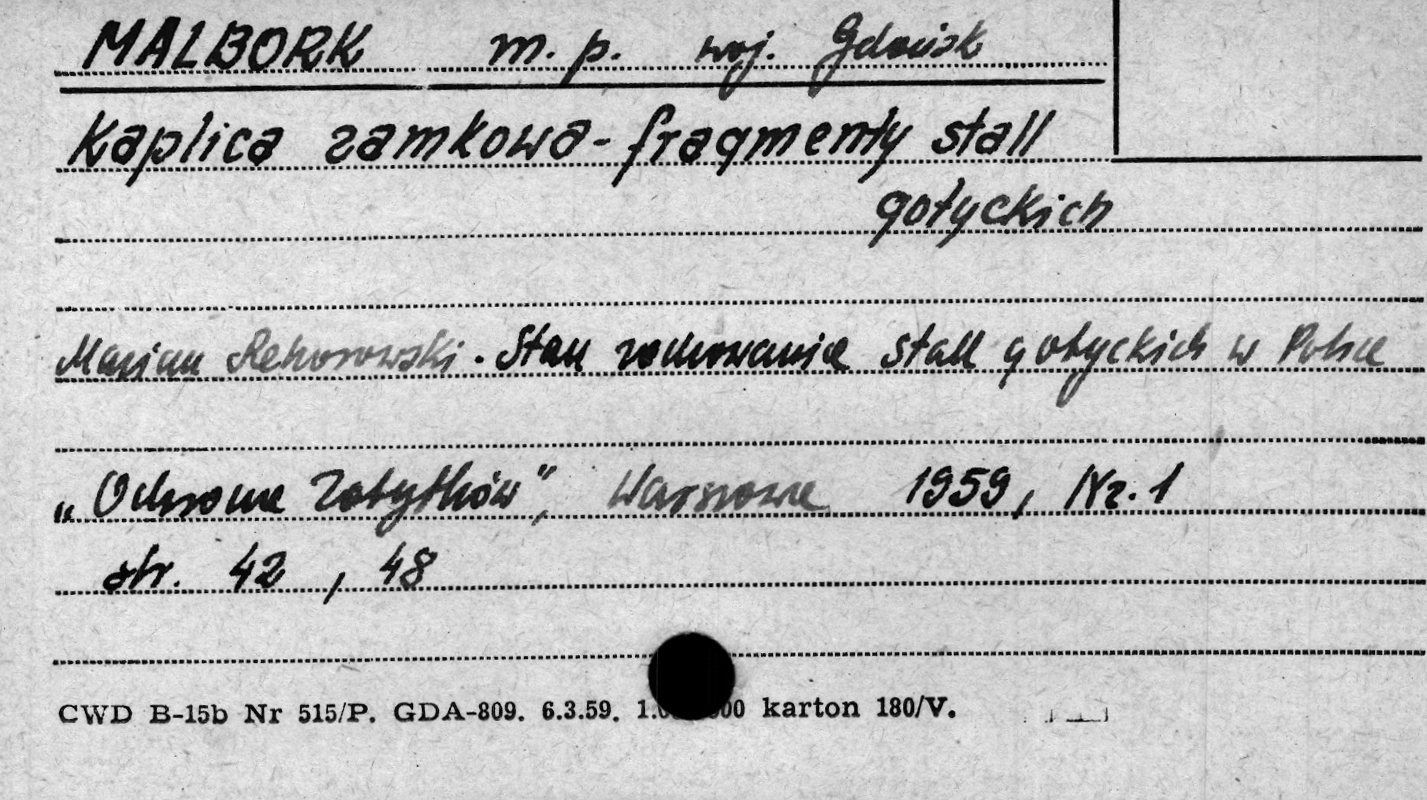 MALBORK m. p. woj. Gdańsk
Kaplica zamkowa - fragmenty stall
gotyckich
Marian Rehorowski. Stan zachowania stall gotyckich w Polsce
„Ochrona Zabytków", Warszawa 1959, Nr. 1
str. 42, 48
CWD B-15b Nr 515/P. GDA-809. 6.3.59. karton 180/V.